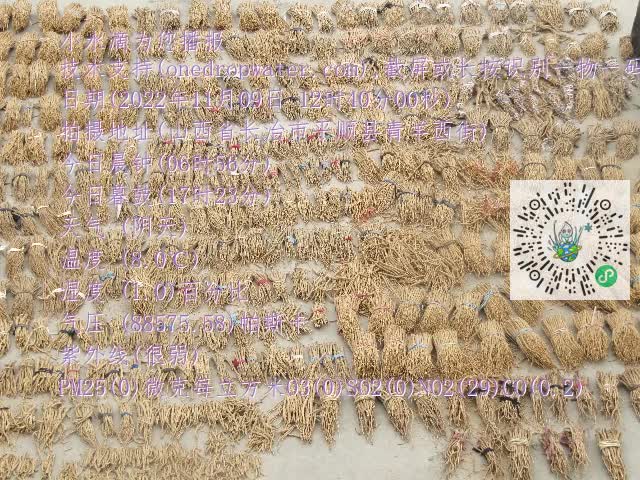 小水滴为您播报
技术支持(onedropwater.com) 截屏或长按识别一物一码
日期(2022年11月09日 12时10分00秒)
拍摄地址(山西省长治市平顺县青羊西街)
今日晨钟(06时56分)
今日暮鼓(17时23分)
天气 (阴天)
温度 (8.0℃)
湿度 (1.0)百分比
气压 (88575.58)帕斯卡
紫外线(很弱)
PM25(0)微克每立方米O3(0)SO2(0)NO2(29)CO(0.2)